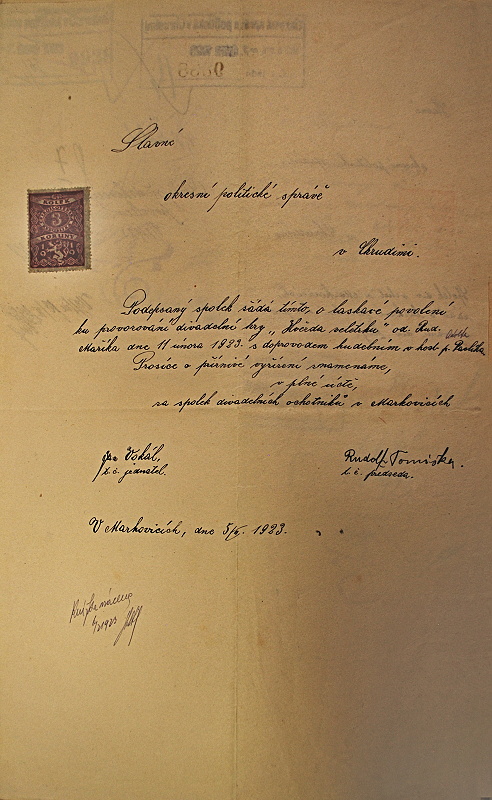 Slavné
okresní politické správě
v Chrudimi.
KOLEK
3
KORUNY
1919
Podepsaný spolek žádá tímto, o laskavé povolení
ku provozování divadelní hry „Hvězda velétržu" od. Rud.
Maříka dne 11 února 1923. s doprovodem hudebním v host p. Pavlíka
Prosíce o příznivé vyřízení znamenáme,
v plné úctě,
za spolek divadelních ochotníků v Markovicích
Jan Vokál,
t. č. jednatel.
Rudolf Tomiška.
t. č. předseda.
V Markovicích, dne 5/II. 1923.
1923